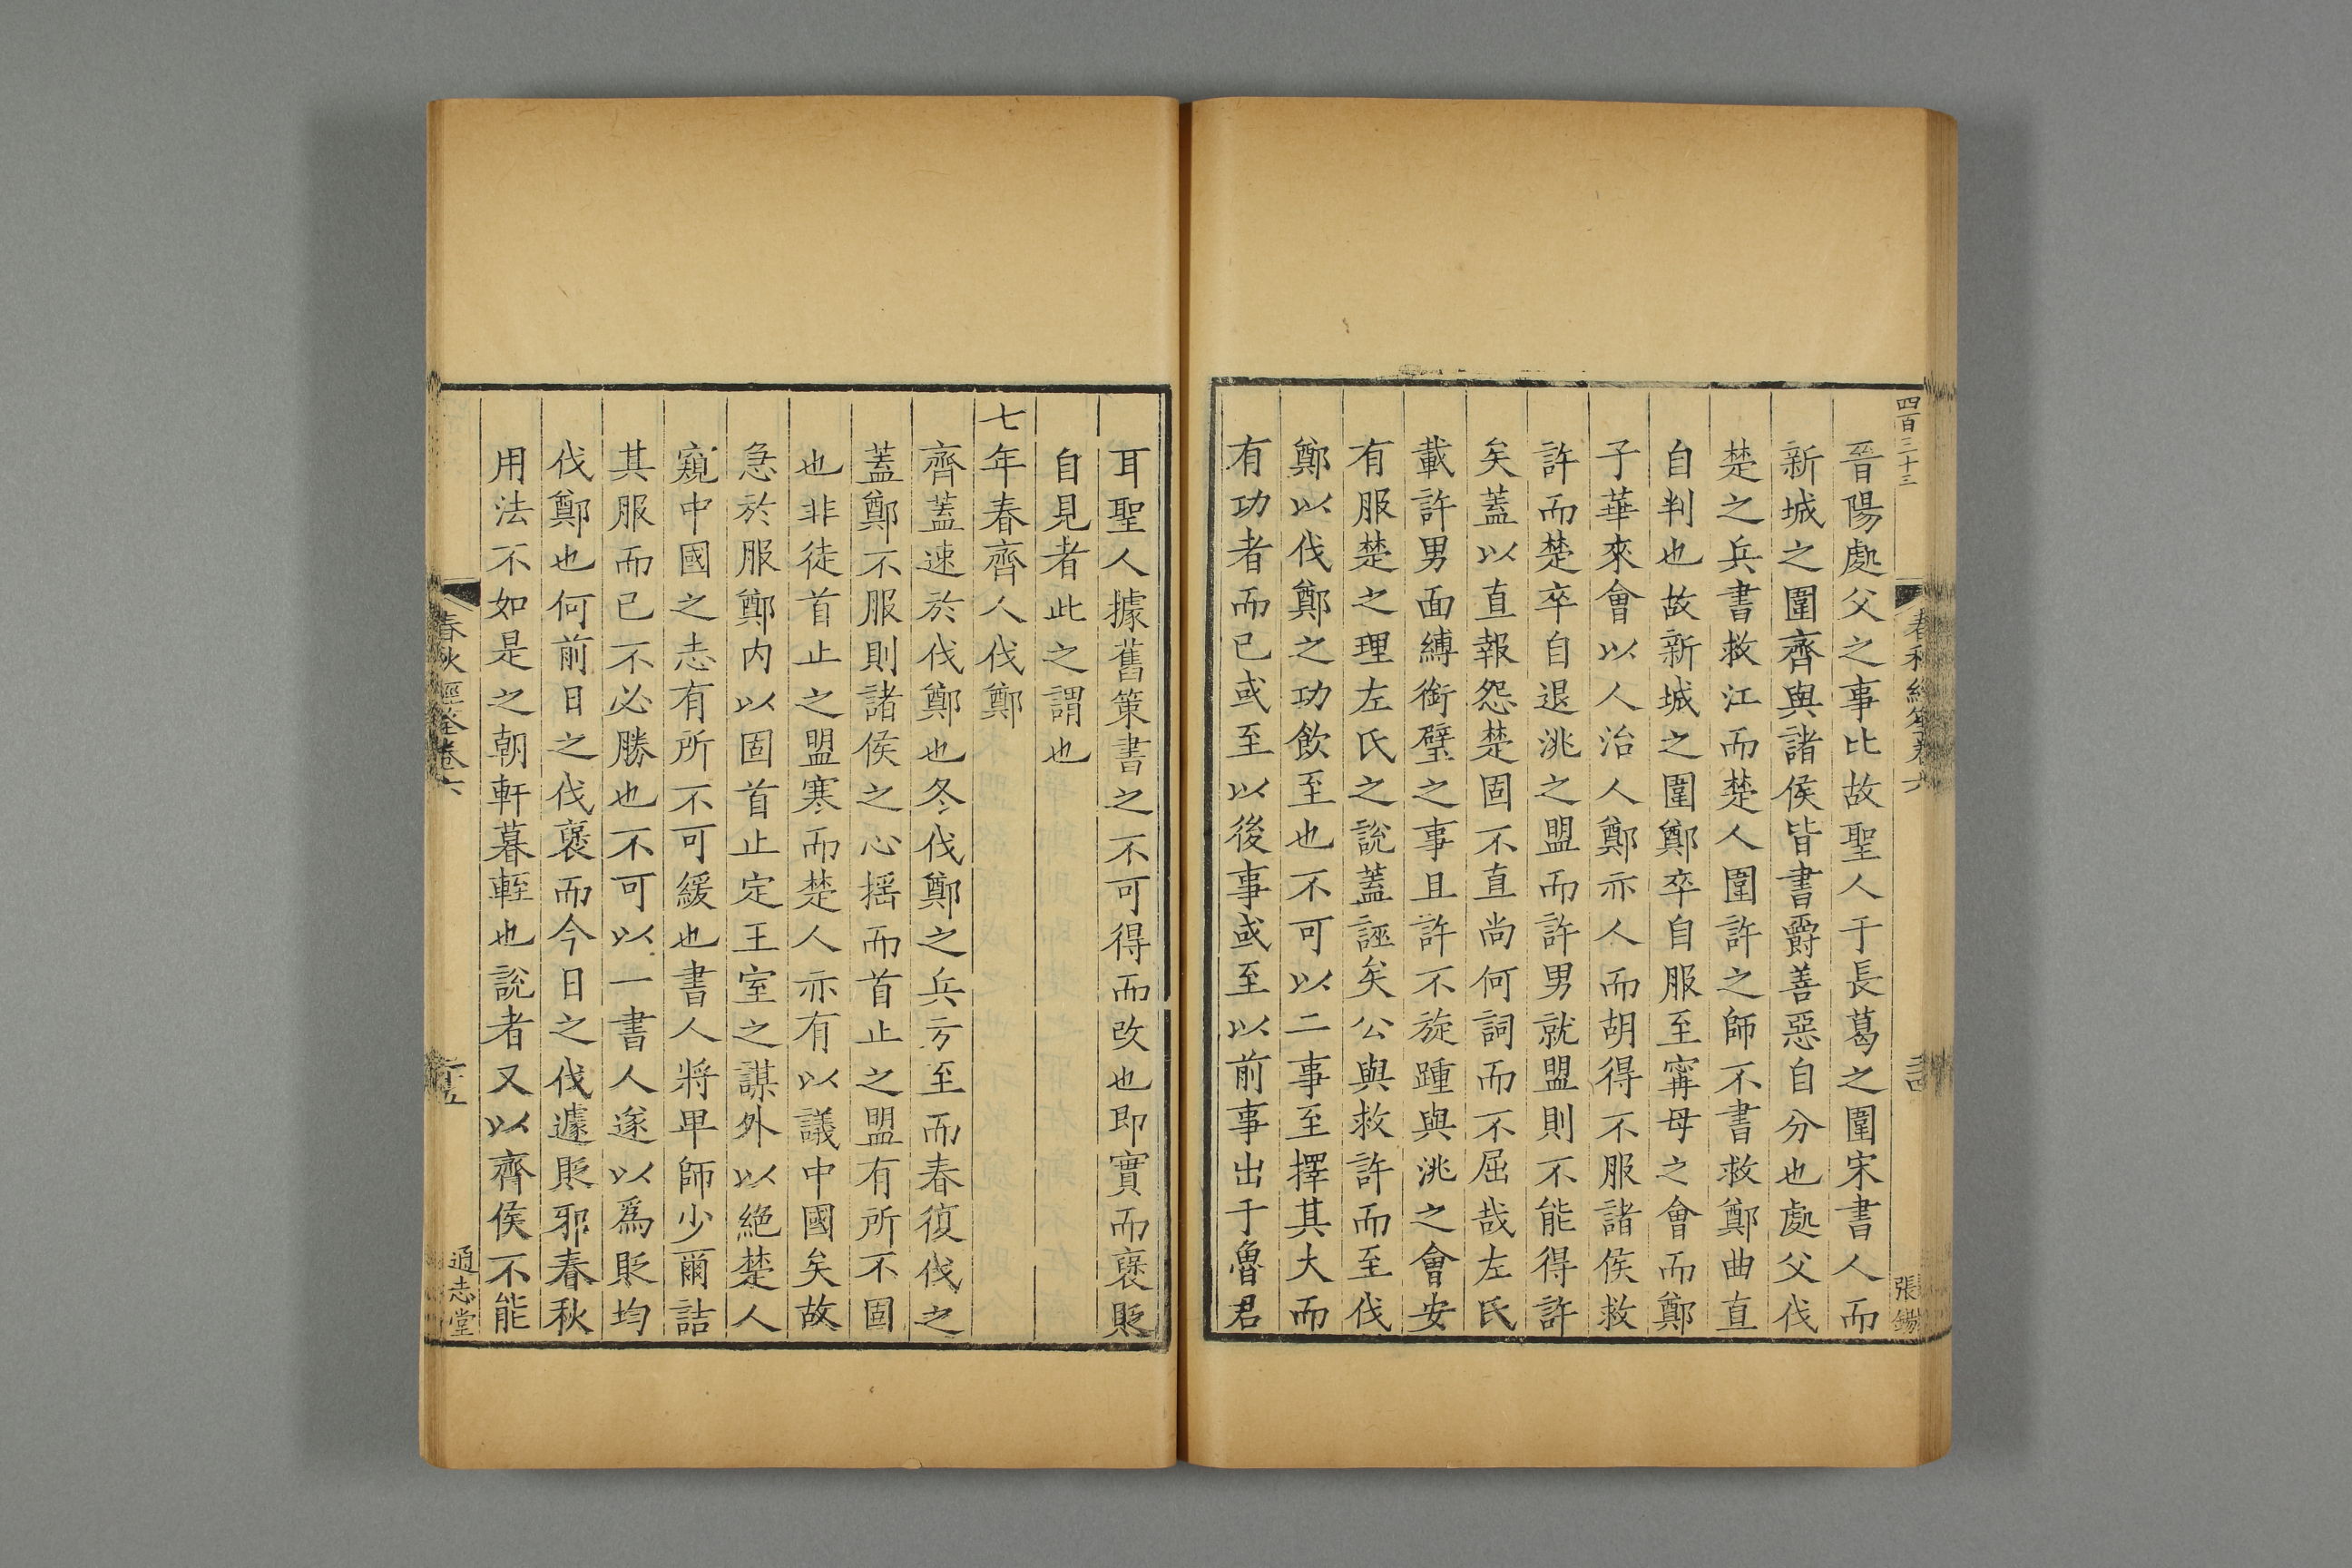 四百三十三
春秋經筌卷六
張錫
晉陽處父之事比故聖人于長葛之圍宋書人而
新城之圍齊與諸侯皆書爵善惡自分也處父伐
楚之兵書救江而楚人圍許之師不書救鄭曲直
自判也故新城之圍鄭卒自服至甯母之會而鄭
子華來會以人治人鄭亦人而胡得不服諸侯救
許而楚卒自退洮之盟而許男就盟則不能得許
矣蓋以直報怨楚固不直尚何詞而不屈哉左氏
載許男面縛銜璧之事且許不旋踵與洮之會安
有服楚之理左氏之說蓋誣矣公與救許而至伐
鄭以伐鄭之功飲至也不可以二事至擇其大而
有功者而已或至以後事或至以前事出于魯君
耳聖人據舊策書之不可得而改也即實而褒貶
自見者此之謂也
七年春齊人伐鄭
齊蓋速於伐鄭也冬伐鄭之兵方至而春復伐之
蓋鄭不服則諸侯之心揺而首止之盟有所不固
也非徒首止之盟寒而楚人亦有以議中國矣故
急於服鄭内以固首止定王室之謀外以絶楚人
窺中國之志有所不可緩也書人將卑師少爾詰
其服而已不必勝也不可以一書人遂以爲貶均
伐鄭也何前日之伐褒而今日之伐遽貶邪春秋
用法不如是之朝軒暮輊也說者又以齊侯不能
春秋經筌卷六
十五
通志堂